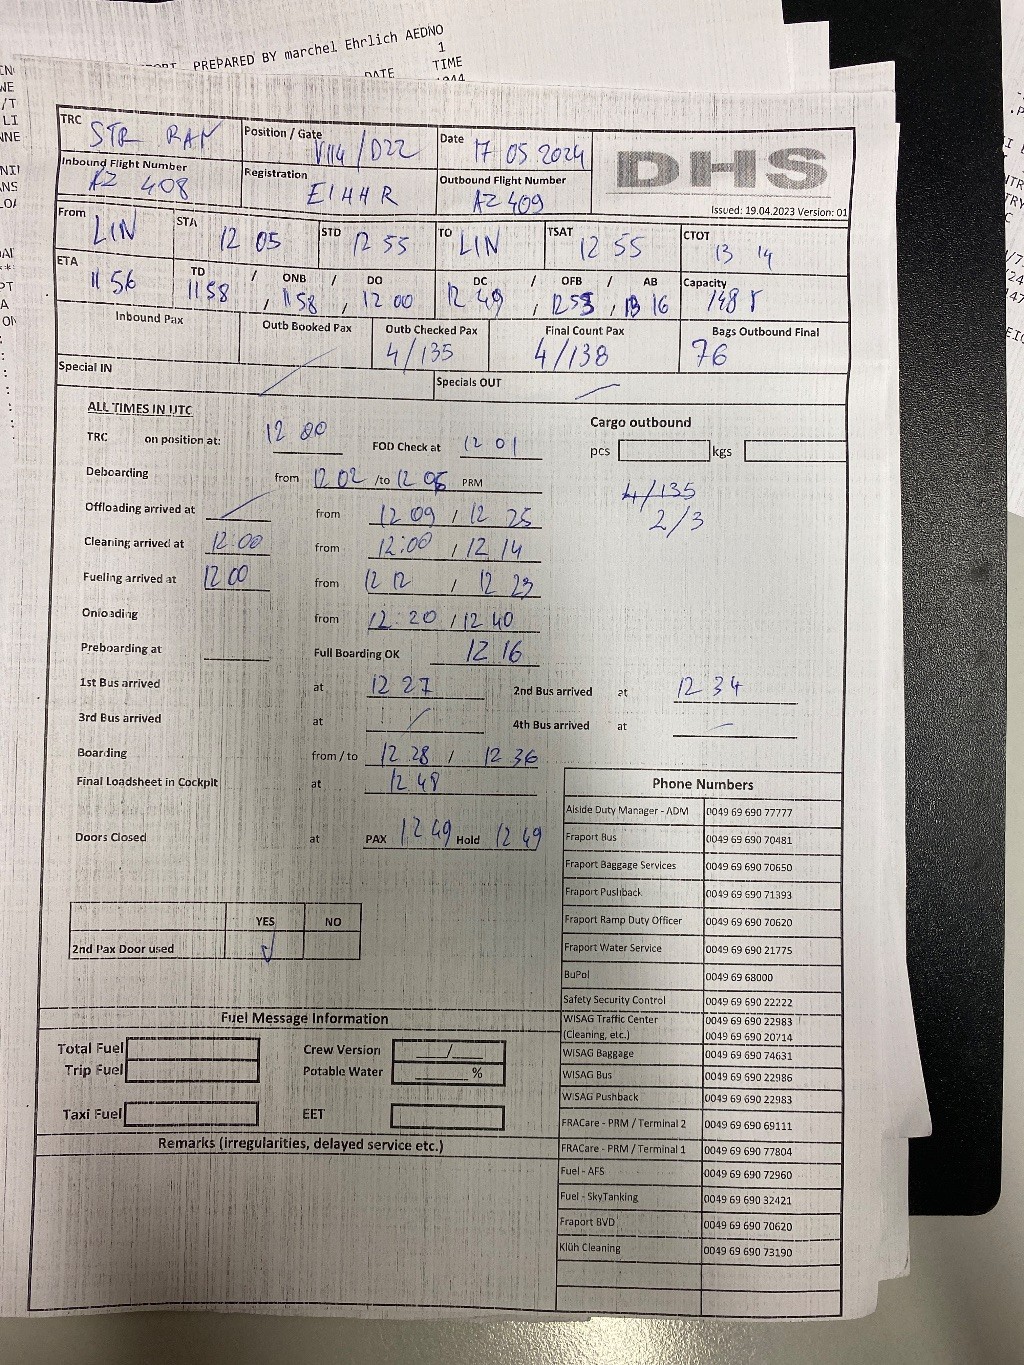 PREPARED BY marchel Ehrlich AEDNO
1
DATE TIME
TRC STR RAM Position / Gate V114 /D22 Date 17 05.2024 DHS
Inbound Flight Number AZ 408 Registration EIHHR Outbound Flight Number AZ 409
Issued: 19.04.2023 Version: 01
From LIN STA 12 05 STD 12 55 TO LIN TSAT 12 55 CTOT 13 14
ETA 11 56 TD / ONB / DO DC / OFB / AB Capacity 148 Y
11 58 , 11 58 , 12 00 12 49 , 12 53 , 13 16
Inbound Pax Outb Booked Pax Outb Checked Pax Final Count Pax Bags Outbound Final
4/135 4/138 76
Special IN Specials OUT
ALL TIMES IN UTC
Cargo outbound
TRC on position at: 12 00 FOD Check at 12 01 pcs kgs
Deboarding from 12 02 /to 12 06 PRM 4/135
Offloading arrived at from 12 09 / 12 25 2/3
Cleaning arrived at 12:00 from 12:00 / 12 14
Fueling arrived at 12 00 from 12 12 , 12 23
Onloading from 12:20 / 12 40
Preboarding at Full Boarding OK 12 16
1st Bus arrived at 12 27 2nd Bus arrived at 12 34
3rd Bus arrived at 4th Bus arrived at
Boarding from / to 12 28 / 12 36
Final Loadsheet in Cockpit at 12 48
Doors Closed at PAX 12 49 Hold 12 49
YES NO
2nd Pax Door used
Phone Numbers
Aiside Duty Manager - ADM 0049 69 690 77777
Fraport Bus 0049 69 690 70481
Fraport Baggage Services 0049 69 690 70650
Fraport Pushback 0049 69 690 71393
Fraport Ramp Duty Officer 0049 69 690 70620
Fraport Water Service 0049 69 690 21775
BuPol 0049 69 68000
Safety Security Control 0049 69 690 22222
WISAG Traffic Center 0049 69 690 22983
(Cleaning, etc.) 0049 69 690 20714
WISAG Baggage 0049 69 690 74631
WISAG Bus 0049 69 690 22986
WISAG Pushback 0049 69 690 22983
FRACare - PRM / Terminal 2 0049 69 690 69111
FRACare - PRM / Terminal 1 0049 69 690 77804
Fuel - AFS 0049 69 690 72960
Fuel - SkyTanking 0049 69 690 32421
Fraport BVD 0049 69 690 70620
Klüh Cleaning 0049 69 690 73190
Fuel Message Information
Total Fuel Crew Version /
Trip Fuel Potable Water %
Taxi Fuel EET
Remarks (irregularities, delayed service etc.)